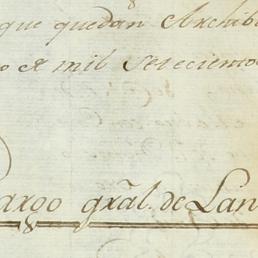 que quedan Archib
o de mil setecientos
argo grãl. de Lan